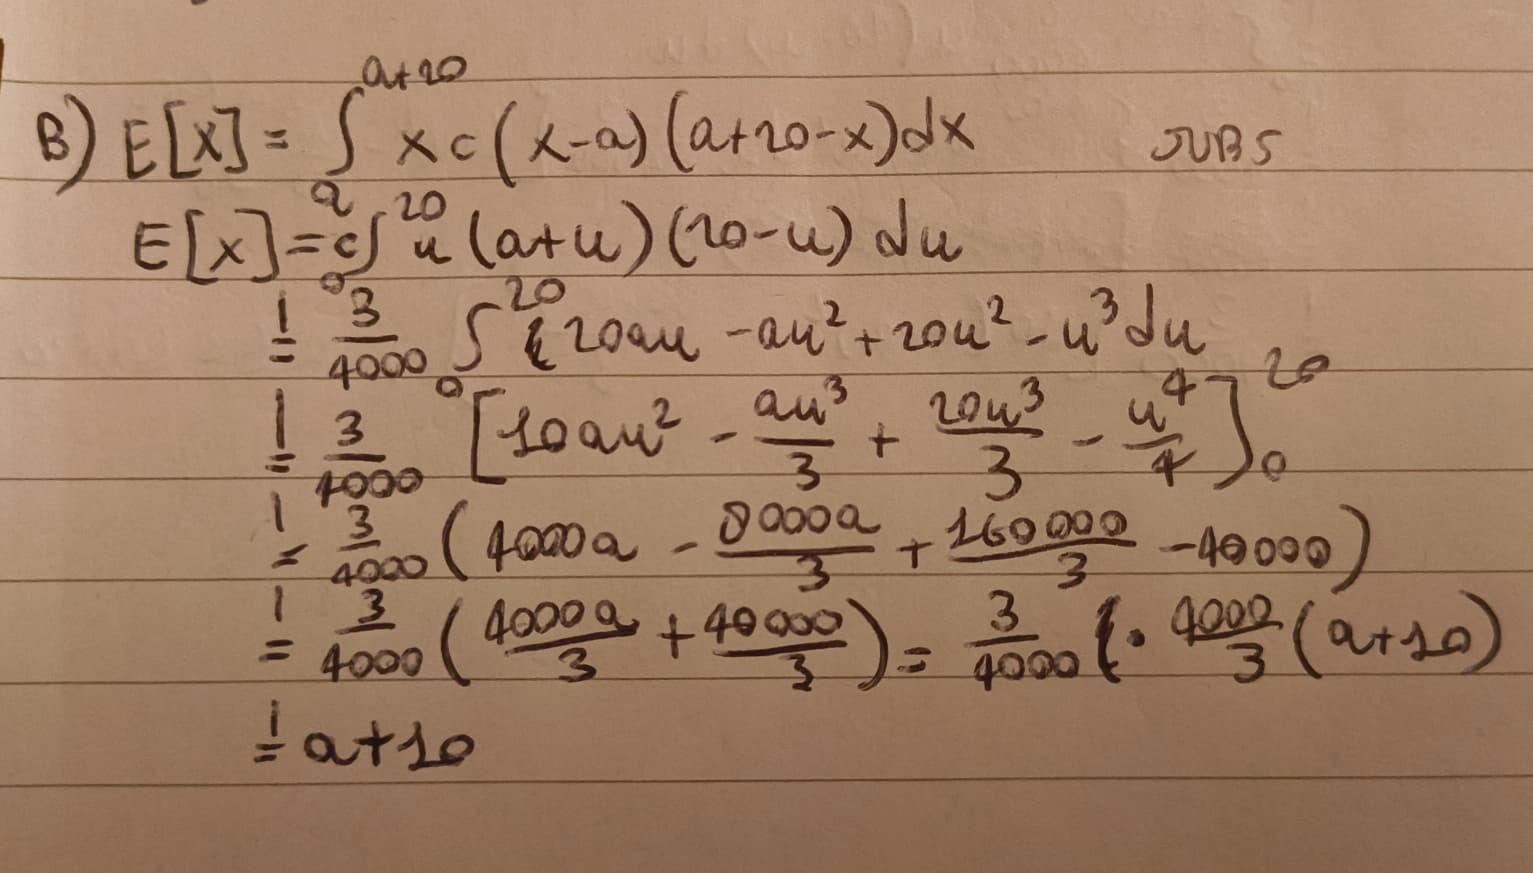 B) E[X] = ∫_a^{a+20} x c (x-a) (a+20-x) dx SUBS
E[X] = c∫_0^{20} u (a+u) (20-u) du
= 3/4000 ∫_0^{20} 20au - au² + 20u² - u³ du
= 3/4000 [10au² - au³/3 + 20u³/3 - u⁴/4]_0^{20}
= 3/4000 (4000a - 8000a/3 + 160000/3 - 40000)
= 3/4000 (4000a/3 + 40000/3) = 3/4000 · 4000/3 (a+10)
= a+10